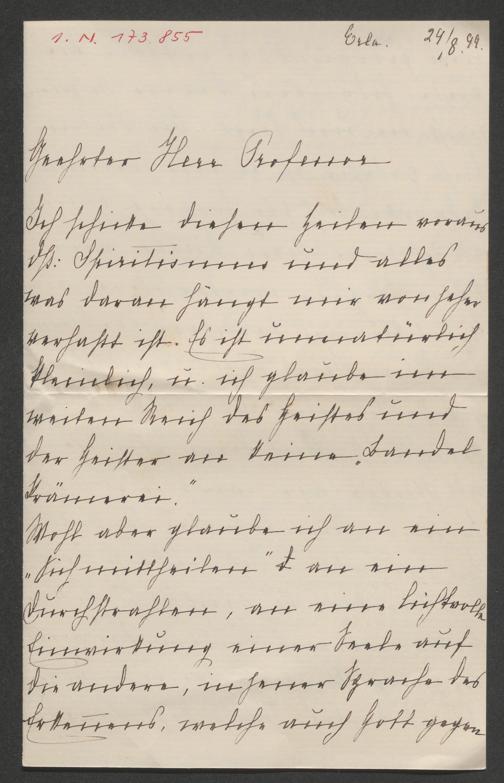 I. N. 173.855
Erla. 24/8. 99.
Geehrter Herr Professor
Ich schicke diesen Zeilen voraus
dß: Spiritismus und alles
was daran hängt mir von jeher
verhaßt ist. Es ist unnatürlich
kleinlich, u. ich glaube im
weiten Reich des Geistes und
der Geister an keine „Bandel
krämerei."
Wohl aber glaube ich an ein
„Sich mittheilen" an ein
Durchstrahlen, an eine lichtvolle
Einwirkung einer Seele auf
die andere, in jener Sprache des
Erkennens, welche auch Gott gegen